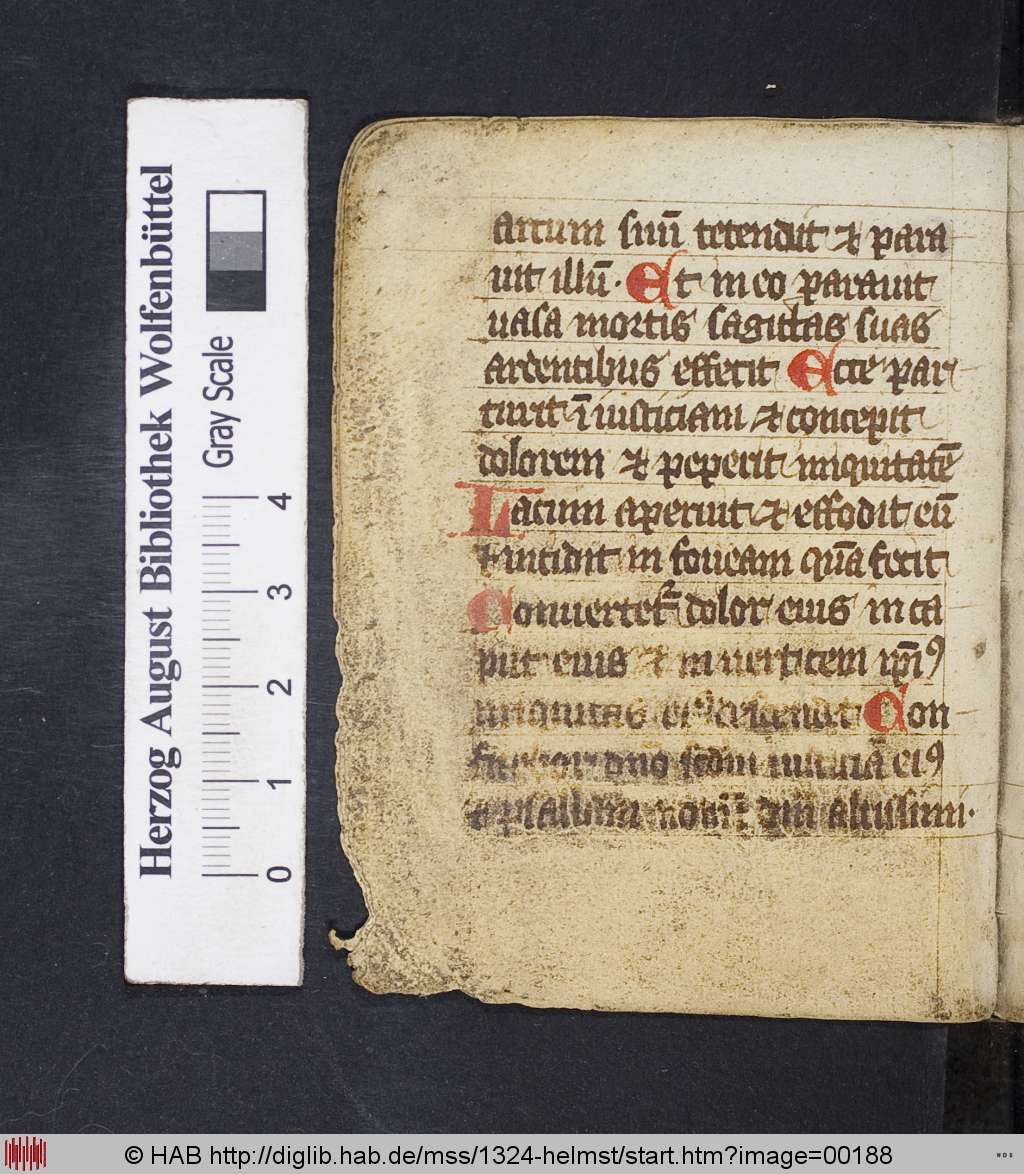 Herzog August Bibliothek Wolfenbüttel
Gray Scale
0 1 2 3 4
arcum suū tetendit & para
uit illū. Et in eo parauit
uasa mortis sagittas suas
ardentibus effecit Ecce par
turit īiusticiam & concepit
dolorem & peperit iniquitatē
Lacum aperuit & effodit eū
& incidit in foueam quā fecit
Conuertet᷑ dolor eius in ca
put eius & in uerticem ip̄iꝰ
iniquitas eiꝰ descendet Con
fitebor dn̄o scd̄m iusticiā eiꝰ
& psallam nomī dn̄i altissimi.
© HAB http://diglib.hab.de/mss/1324-helmst/start.htm?image=00188
WDB